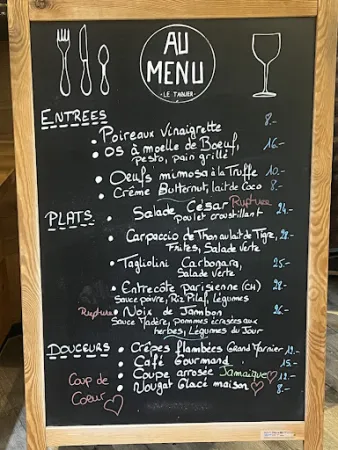 AU
MENU
• LE TABLIER •
ENTREES
• Poireaux vinaigrette 8.-
• Os à moelle de Boeuf, 16.-
pesto, pain grillé
• Oeufs mimosa à la Truffe 10.-
• Crème Butternut, lait de Coco 8.-
PLATS
• Salade César Rupture 24.-
poulet croustillant
• Carpaccio de Thon au lait de Tigre, 29.-
Frites, Salade verte
• Tagliolini Carbonara, 25.-
Salade verte
• Entrecôte parisienne (CH) 28.-
Sauce poivre, Riz Pilaf, Légumes
Rupture • Noix de Jambon 26.-
Sauce Madère, pommes écrasées aux
herbes, Légumes du Jour
DOUCEURS
• Crêpes flambées Grand Marnier 12.-
• Café Gourmand 15.-
Coup de
Coeur
• Coupe arrosée Jamaïque 12.-
• Nougat Glacé maison 8.-